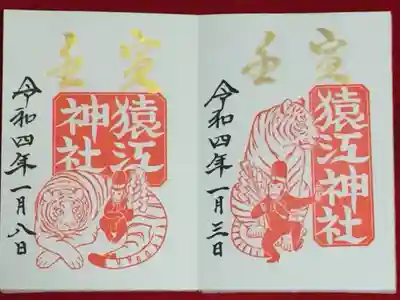 壬寅
猿江
神社
令和四年一月八日
壬寅
猿江神社
令和四年一月三日